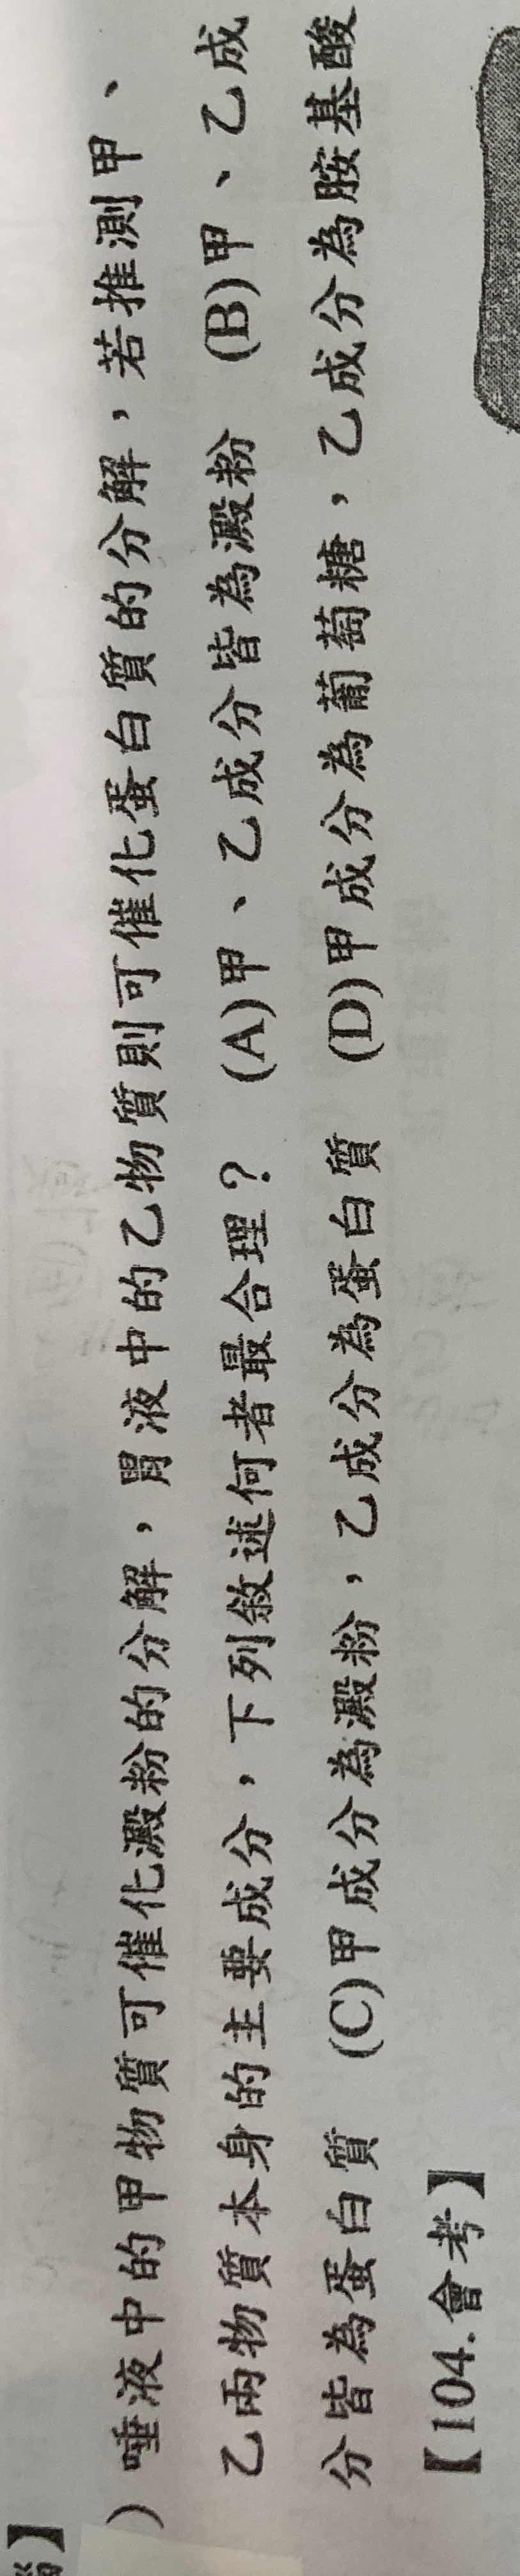 】
）唾液中的甲物質可催化澱粉的分解，胃液中的乙物質則可催化蛋白質的分解，若推測甲、
乙兩物質本身的主要成分，下列敘述何者最合理？ (A)甲、乙成分皆為澱粉 (B)甲、乙成
分皆為蛋白質 (C)甲成分為澱粉，乙成分為蛋白質 (D)甲成分為葡萄糖，乙成分為胺基酸
【104.會考】